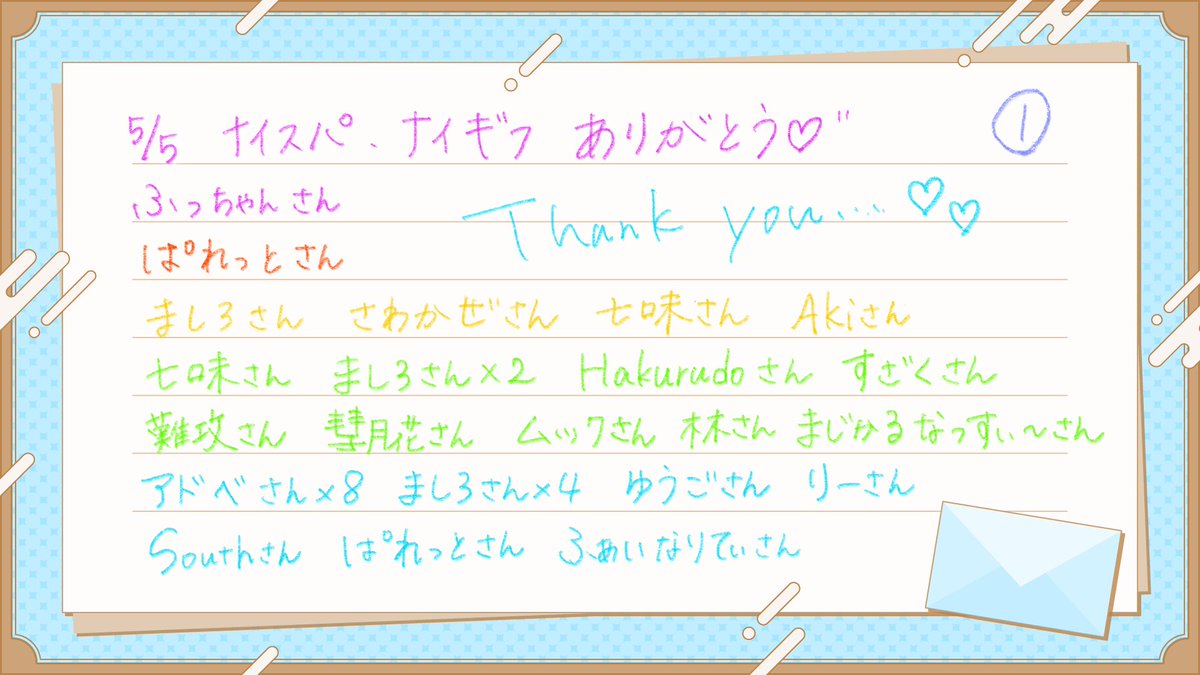 5/5 ナイスパ、ナイギフ ありがとう♡" ①
ふっちゃんさん
Thank you...... ♡♡
ぱれっとさん
ましろさん さわかぜさん 七味さん Akiさん
七味さん ましろさん×2 Hakurudoさん すざくさん
難攻さん 彗月花さん ムックさん 林さん まじかるなっすぃ〜さん
アドベさん×8 ましろさん×4 ゆうごさん りーさん
Southさん ぱれっとさん ふぁいなりてぃさん